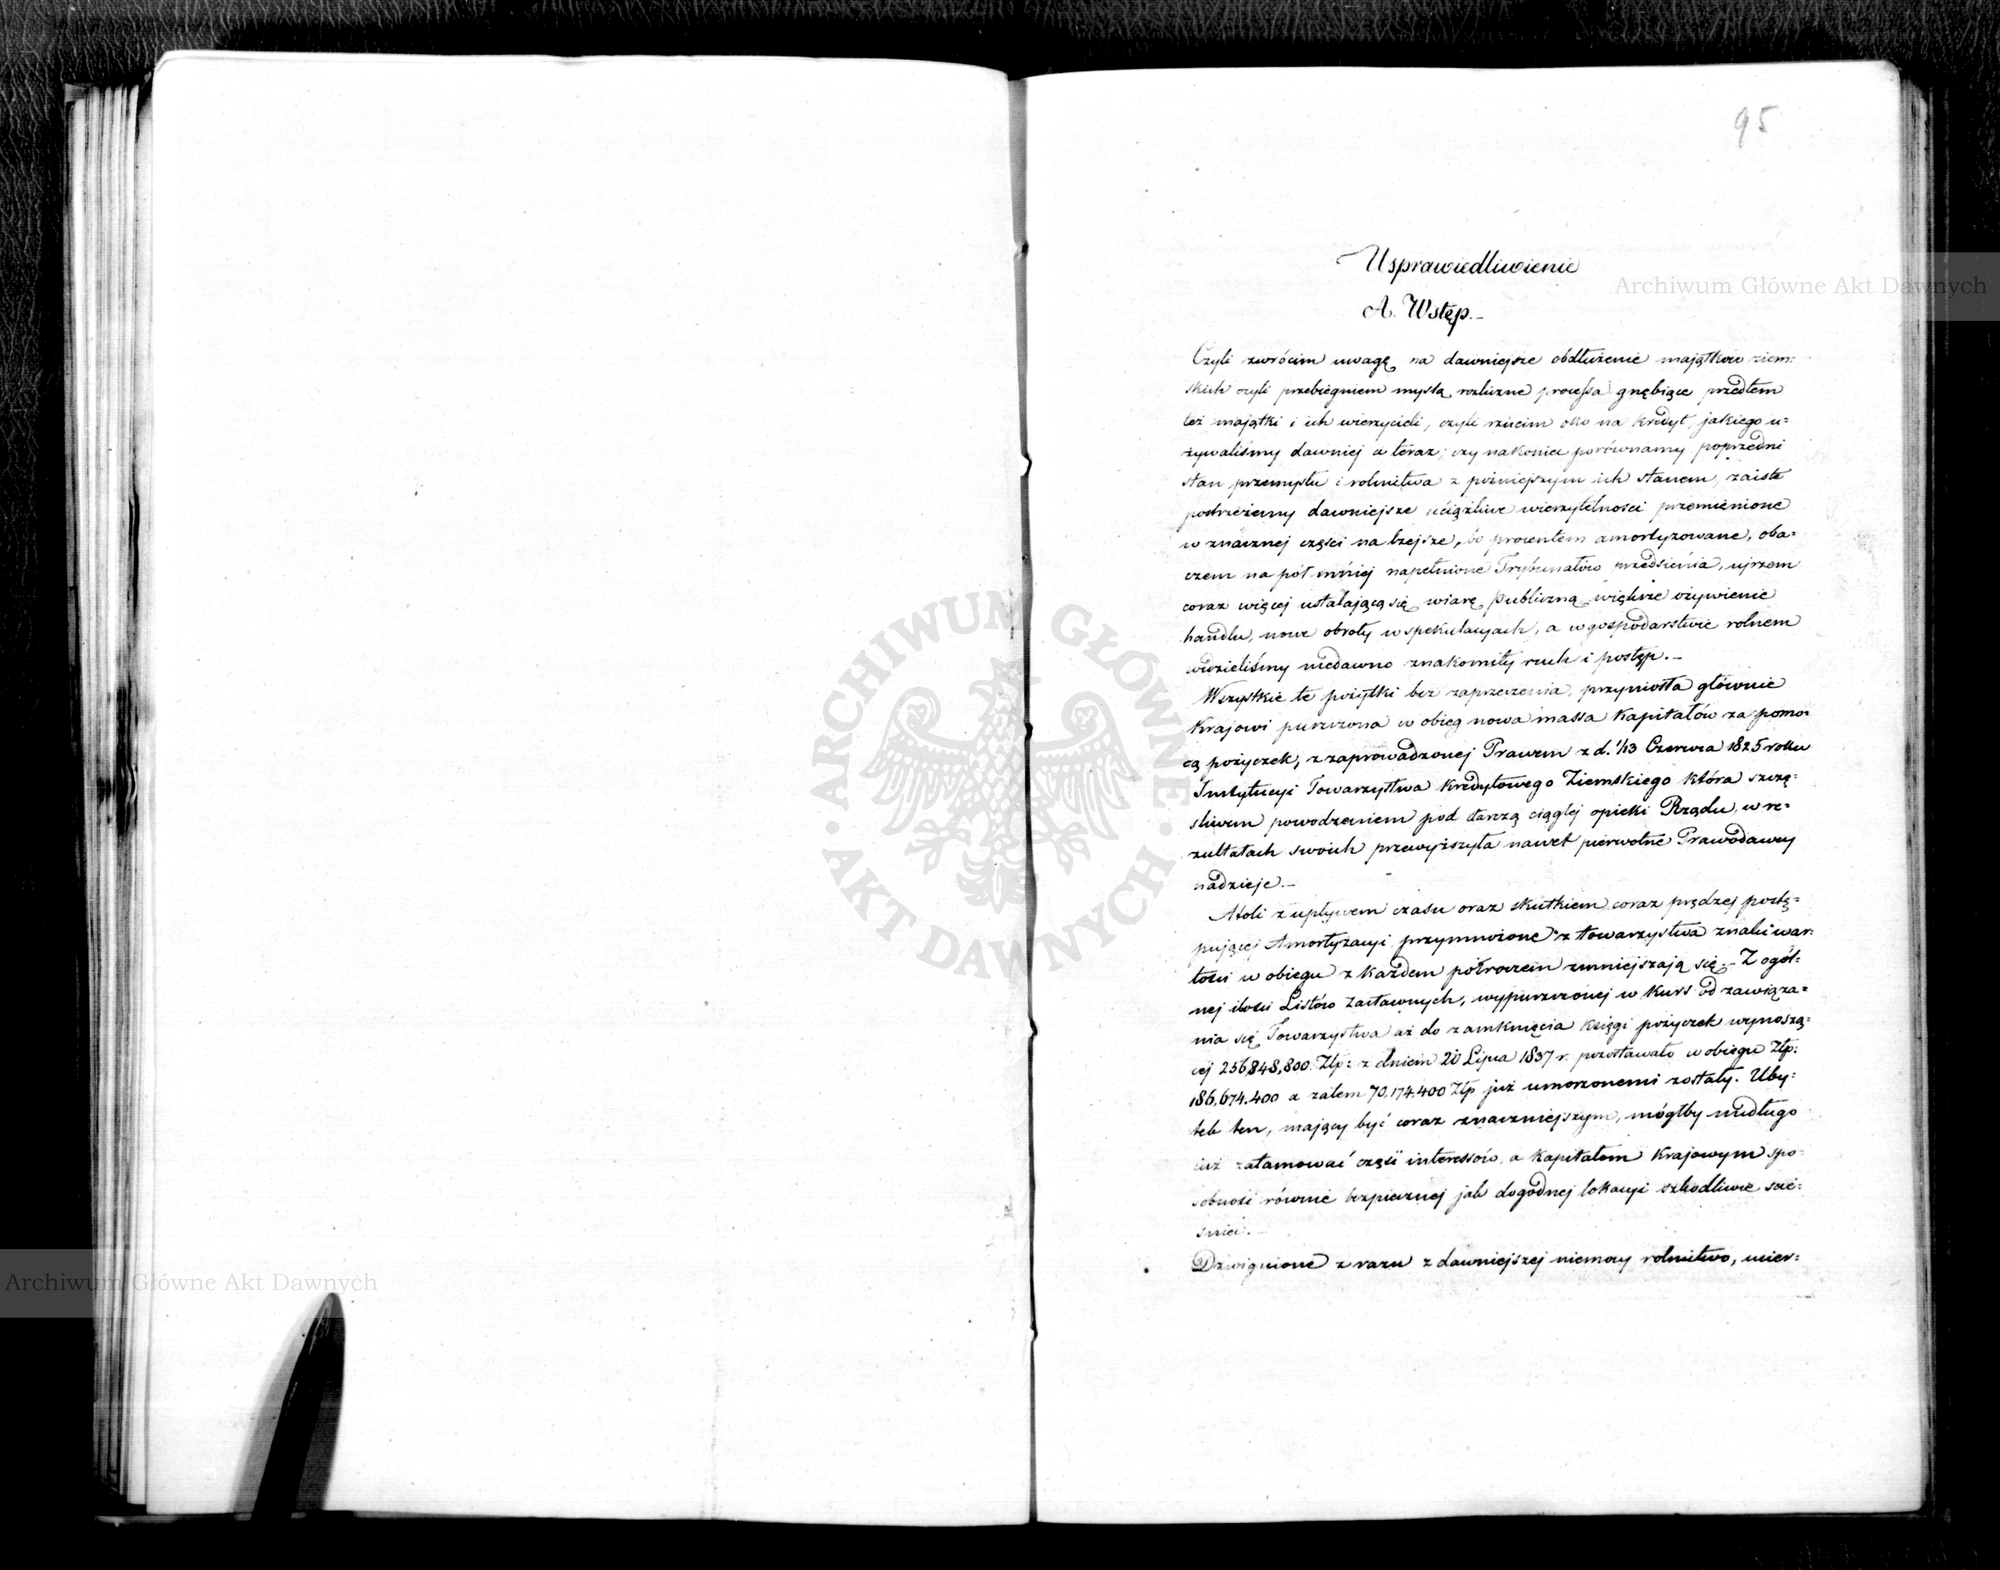 95
Usprawiedliwienie
A. Wstęp.–
Czyli zwrócim uwagę na dawniejsze obdłużenie majątków ziem=
skich czyli przebiegniem myslą rozliczne processa gnębiące przedtem
też majątki i ich wierzycieli, czyli rzucim oko na kredyt, jakiego u=
żywaliśmy dawniej a teraz; czy nakoniec porównamy poprzedni
stan przemysłu i rolnictwa z poźniejszym ich stanem, zaiste
postrzeżemy dawniejsze uciążliwe wierzytelności przemienione
w znacznej części na lżejsze, bo procentem amortyzowane, oba=
czem na pół mniéj napełnione Trybunałów przedsienia, ujrzem
coraz więcej ustalającą się wiarę publiczną, większe ożywienie
handlu, nowe obroty w spekulacyach, a w gospodarstwie rolnem
widzieliśmy niedawno znakomity ruch i postęp.–
Wszystkie te pożytki bez zaprzeczenia, przyniosła głównie
Krajowi puszczona w obieg nowa massa Kapitałów za pomo=
cą pożyczek, z zaprowadzonej Prawem z d. 1/13 Czerwca 1825 roku
Instytucyi Towarzystwa Kredytowego Ziemskiego która szczę=
śliwem powodzeniem pod tarczą ciągłej opieki Rządu, w re=
zultatach swoich przewyższyła nawet pierwotne Prawodawcy
nadzieje.–
Atoli z upływem czasu oraz skutkiem coraz prędzej postę=
pującej Amortyzacyi przymnożone z towarzystwa znaki war=
tości w obiegu z każdem półroczem zmniejszają się.– Z ogól=
nej ilości Listów Zastawnych, wypuszczonej w kurs od zawiąza=
nia się Towarzystwa aż do zamknięcia księgi pożyczek wynoszą=
cej 256,848,800 Złp: z dniem 20 Lipca 1837 r. pozostawało w obiegu Złp:
186.674.400 a zatem 70,174.400 Złp już umorzonemi zostały. Uby=
tek ten, mający być coraz znaczniejszym, mógłby niedługo
już zatamować część interessów, a Kapitałom Krajowym spo=
sobność równie bezpiecznej jak dogodnej lokacyi szkodliwie ście=
śnić.–
Dzwignione z razu z dawniejszej niemocy rolnictwo, ucier=
Archiwum Główne Akt Dawnych
Archiwum Główne Akt Dawnych
ARCHIWUM GŁÓWNE · AKT DAWNYCH ·